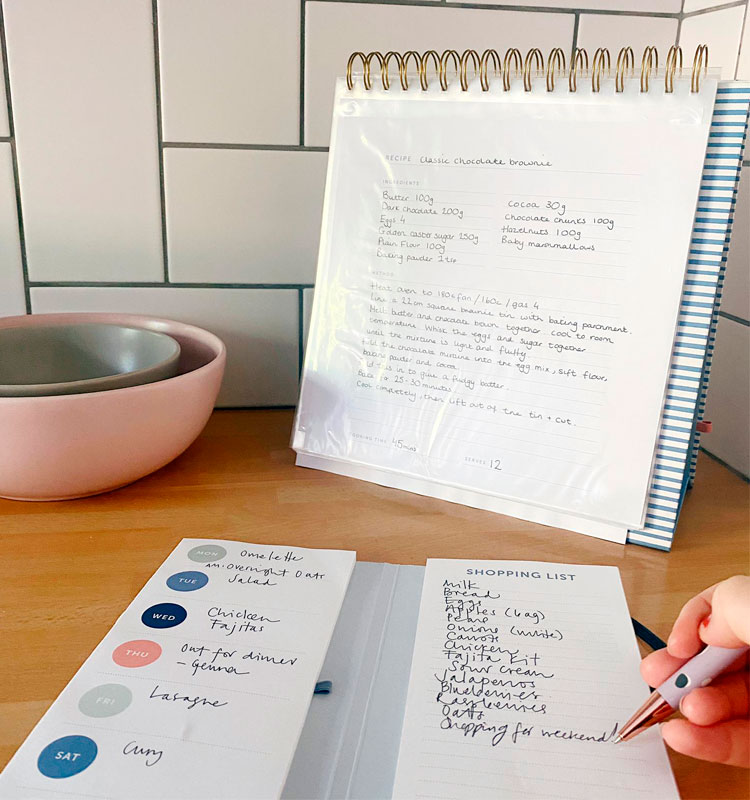 RECIPE Classic chocolate brownie
INGREDIENTS
Butter 100g
Dark chocolate 200g
Eggs 4
Golden caster sugar 250g
Plain Flour 100g
Baking powder 1 tsp
Cocoa 30g
Chocolate chunks 100g
Hazelnuts 100g
Baby marshmallows
METHOD
Heat oven to 180c fan / 160c / gas 4
Line a 22cm square brownie tin with baking parchment.
Melt butter and chocolate down together cool to room
temperature. Whisk the eggs and sugar together
until the mixture is light and fluffy.
Fold the chocolate mixture into the egg mix, sift flour,
baking powder and cocoa.
this in to give a fudgy batter.
25-30 minutes.
Cool completely, then lift out of the tin + cut.
COOKING TIME 45mins
SERVES 12
MON Omelette
AM: Overnight Oats
TUE Salad
WED Chicken
Fajitas
THU Out for dinner
- Genna
FRI Lasagne
SAT Curry
SHOPPING LIST
Milk
Bread
Eggs
Apples (bag)
Pears
Onions (white)
Carrots
Chicken
Fajita Kit
Sour cream
Jalapenos
Blueberries
Raspberries
Oats
Shopping for weekend!